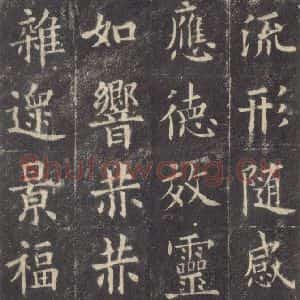 流形随感
應德效靈
如響赫赫
雜遝景福
Shufawang.cn